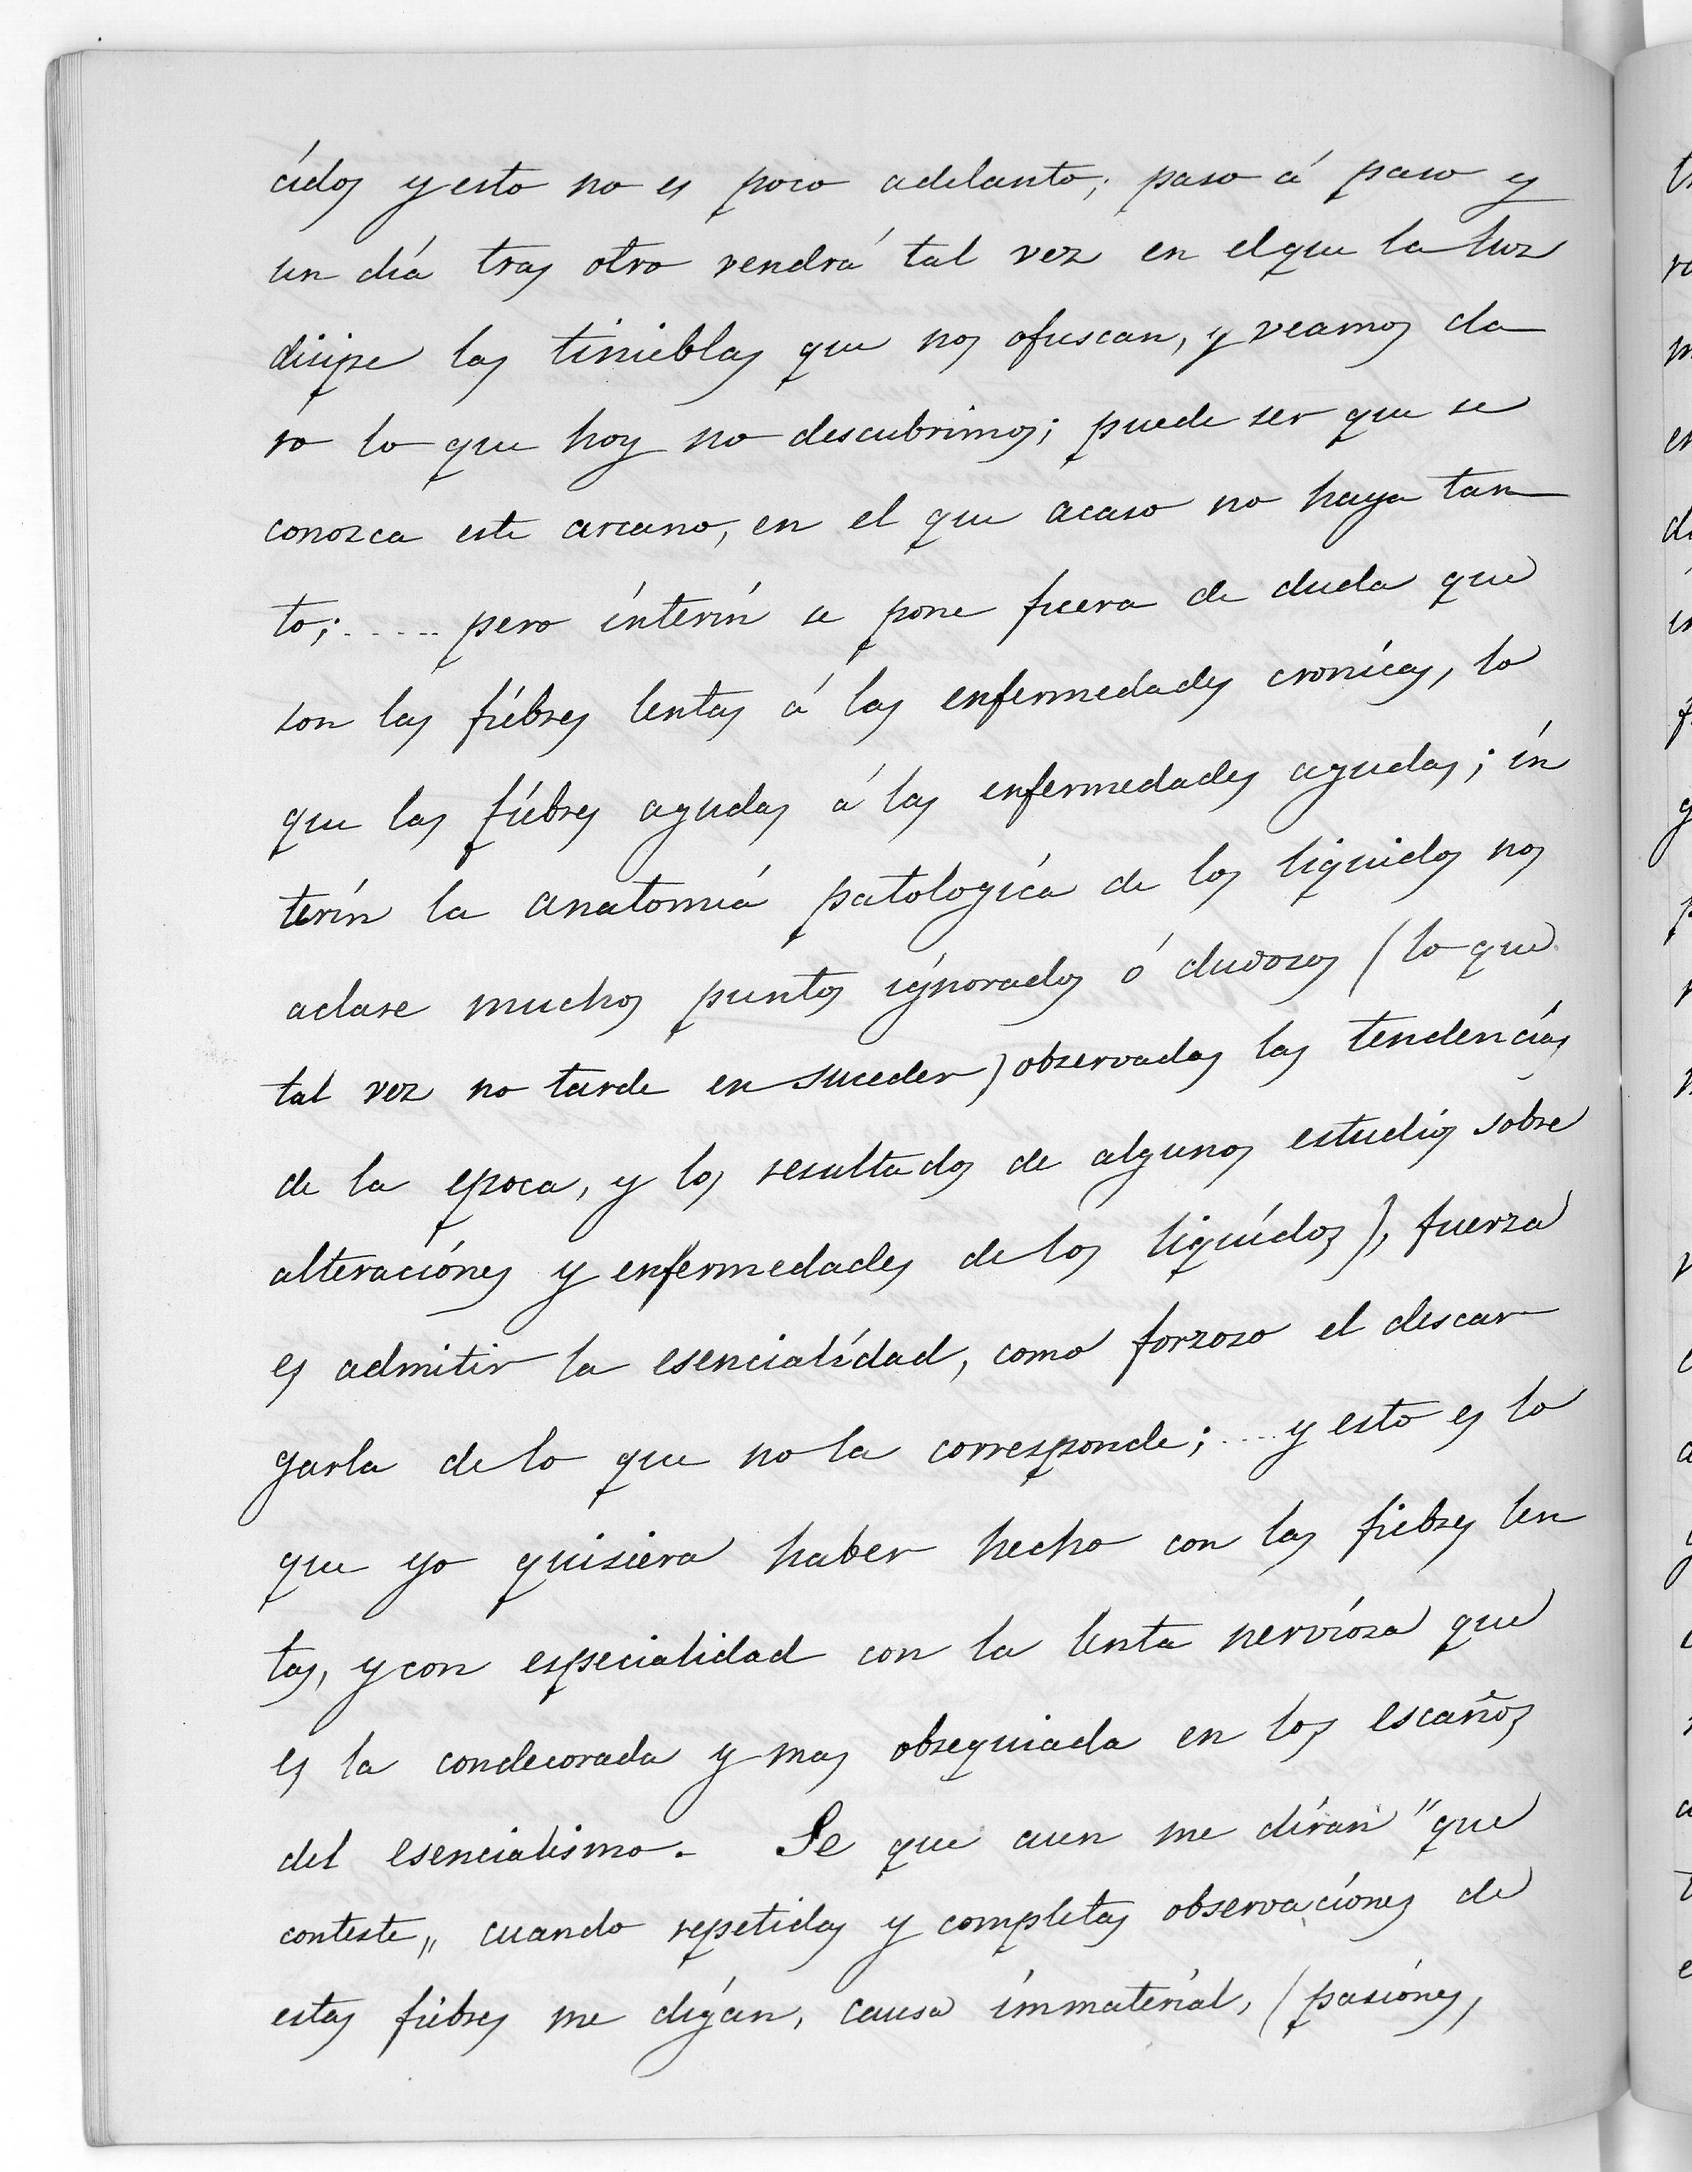 cidos y esto no es poco adelanto; paso á paso y
un dia tras otro vendrá tal vez en el que la luz
disipe las tinieblas que nos ofuscan, y veamos cla
ro lo que hoy no descubrimos; puede ser que se
conozca este arcano, en el que acaso no haya tan
to;..... pero interin se pone fuera de duda que
son las fiebres lentas á las enfermedades cronicas, lo
que las fiebres agudas á las enfermedades agudas; in
terin la anatomia patologica de los liquidos nos
aclare muchos puntos ignorados ó dudosos (lo que
tal vez no tarde en suceder) observadas las tendencias
de la epoca, y los resultados de algunos estudios sobre
alteraciones y enfermedades de los liquidos), fuerza
es admitir la esencialidad, como forzoso el descar
garla de lo que no la corresponde;.... y esto es lo
que yo quisiera haber hecho con las fiebres len
tas, y con especialidad con la lenta nerviosa que
es la condecorada y mas obsequiada en los escaños
del esencialismo. Se que aun me diran "que
conteste„ cuando repetidas y completas observaciones de
estas fiebres me digan, causa immaterial, (pasiones,